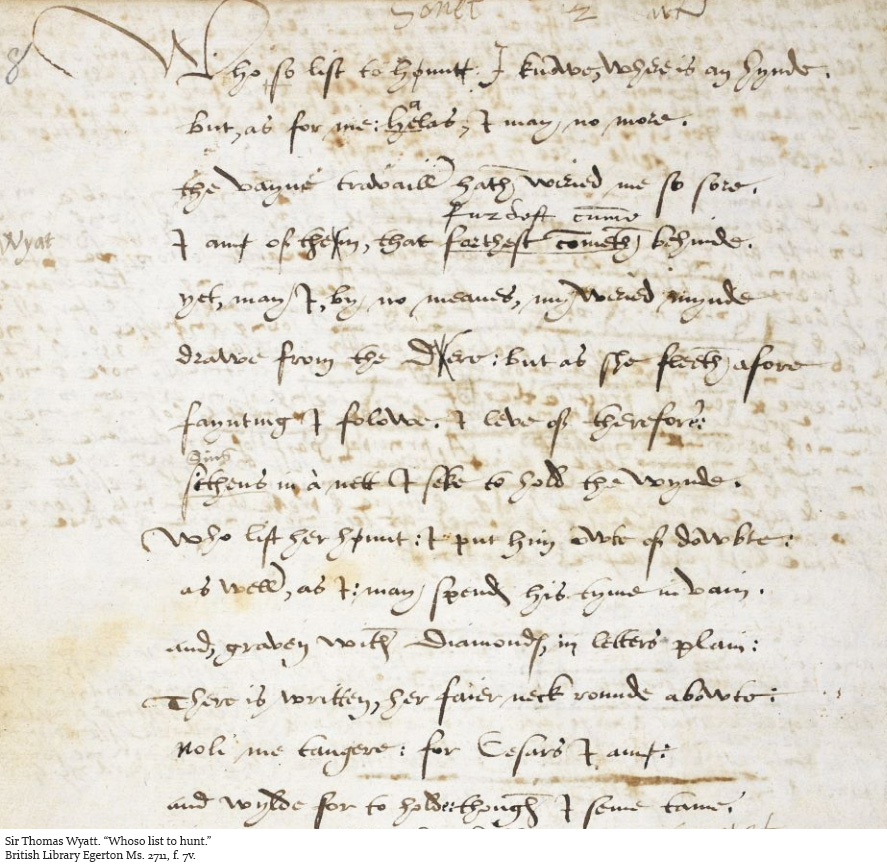 Sonet 2
8
Who so list to hount I knowe, where is an hynde.
but, as for me: helas, I may no more.
a
the vayne travaill hath weried me so sore.
furdest cume
Wyat
I ame of theim, that farthest cometh behinde.
yet, may I, by no meanes, my weried mynde
drawe from the Diere: but as she fleeth afore
faynting I folowe. I leve of therefore:
Sins
sithens in a nett I seke to hold the wynde.
Who list her hount: I put him owte of dowbte:
as well, as I: may spend his tyme in vain.
and, graven with Diamonds, in letters plain:
There is written, her faier neck rounde abowte:
Noli me tangere: for Cesars I ame:
and wylde for to hold: though I seme tame.
Sir Thomas Wyatt. “Whoso list to hunt.”
British Library Egerton Ms. 2711, f. 7v.